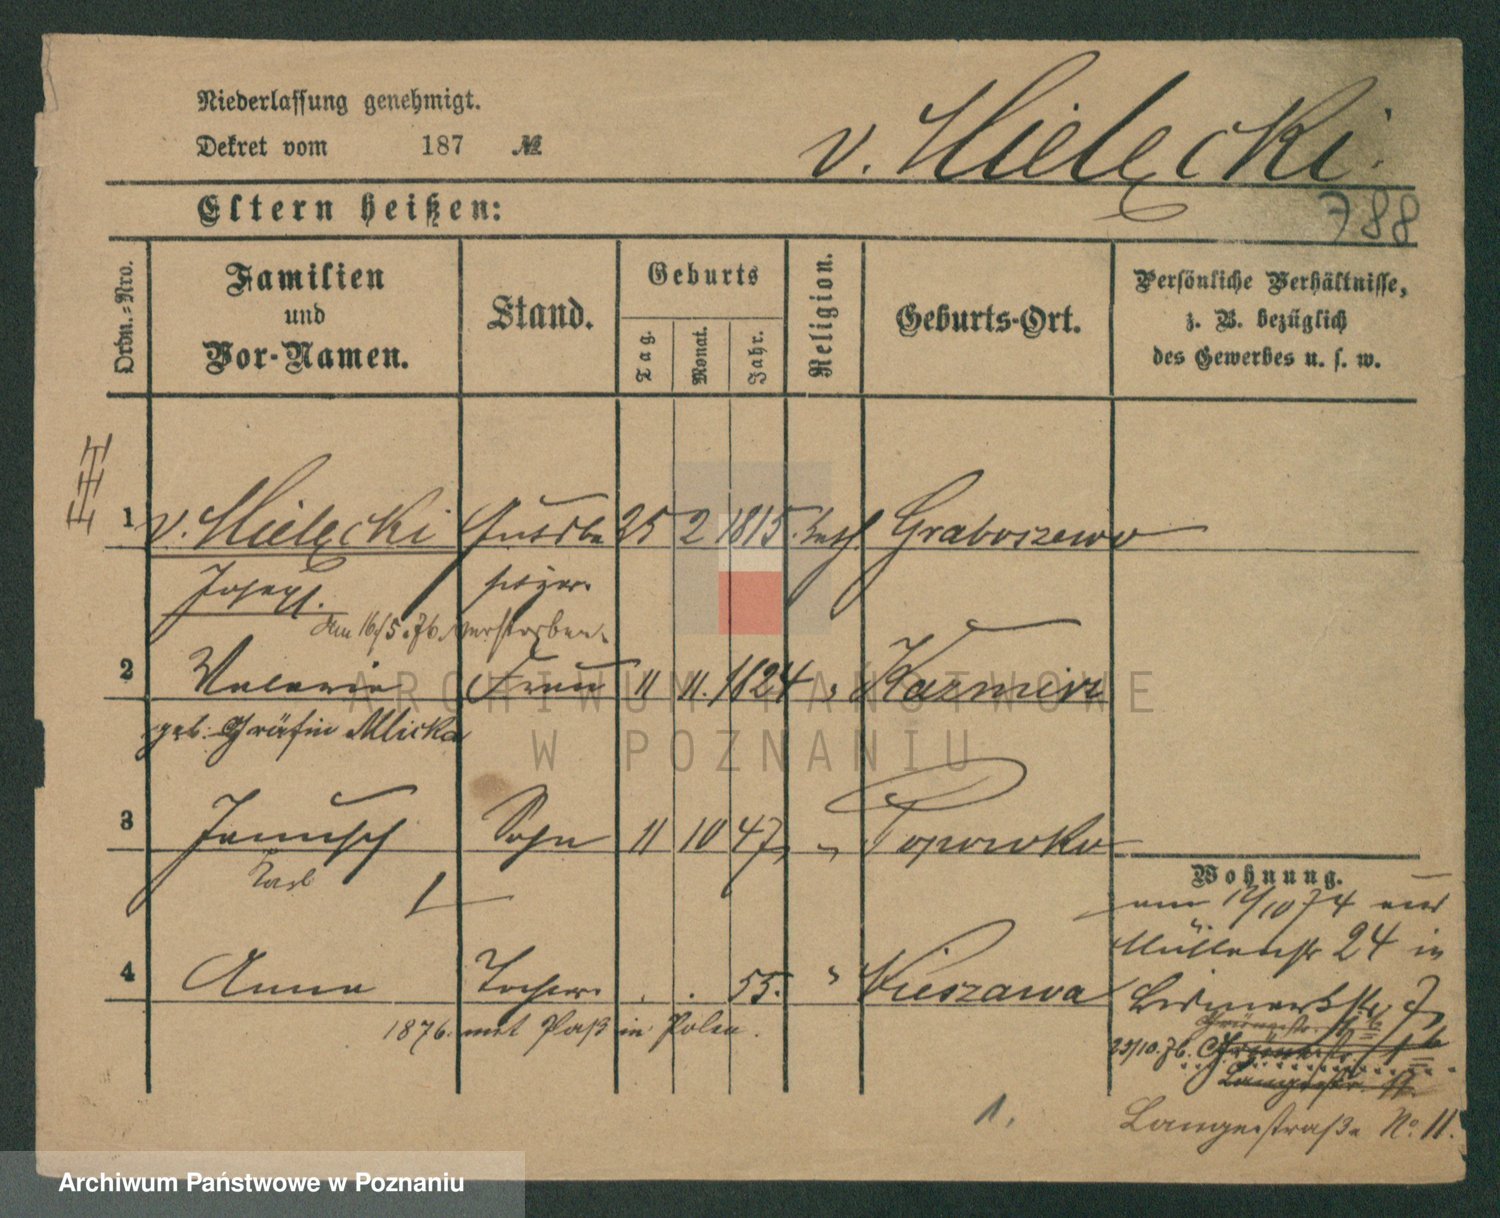 Niederlassung genehmigt.
Dekret vom 187 №
v. Mielęcki.
788
Eltern heißen:
Ordn.-Nro.
Familien
und
Vor-Namen.
Stand.
Geburts
Tag.
Monat.
Jahr.
Religion.
Geburts-Ort.
Persönliche Verhältnisse,
z. B. bezüglich
des Gewerbes u. s. w.
1 v. Mielęcki Gutsbe 25 2 1815. kath. Graboszewo
Joseph. sitzer.
Am 16/5.76. verstorben.
2 Valerie Frau 11 11. 1824 " Kazmierz
geb. Gräfin Mlicka
3 Janusch Sohn 11 10 47, " Popowko
Karl
4 Anna Tochter. . . 55. " Wieszawa
1876. mit Paß in Polen.
Wohnung.
am 12/10 74 aus
Müllerstr 24 in
Bismarckstr 7,
Grünestr.
29/10.76. Grünestr.
Langestr. 11.
Langestraße No. 11.
1.
ARCHIWUM PAŃSTWOWE
W POZNANIU
Archiwum Państwowe w Poznaniu